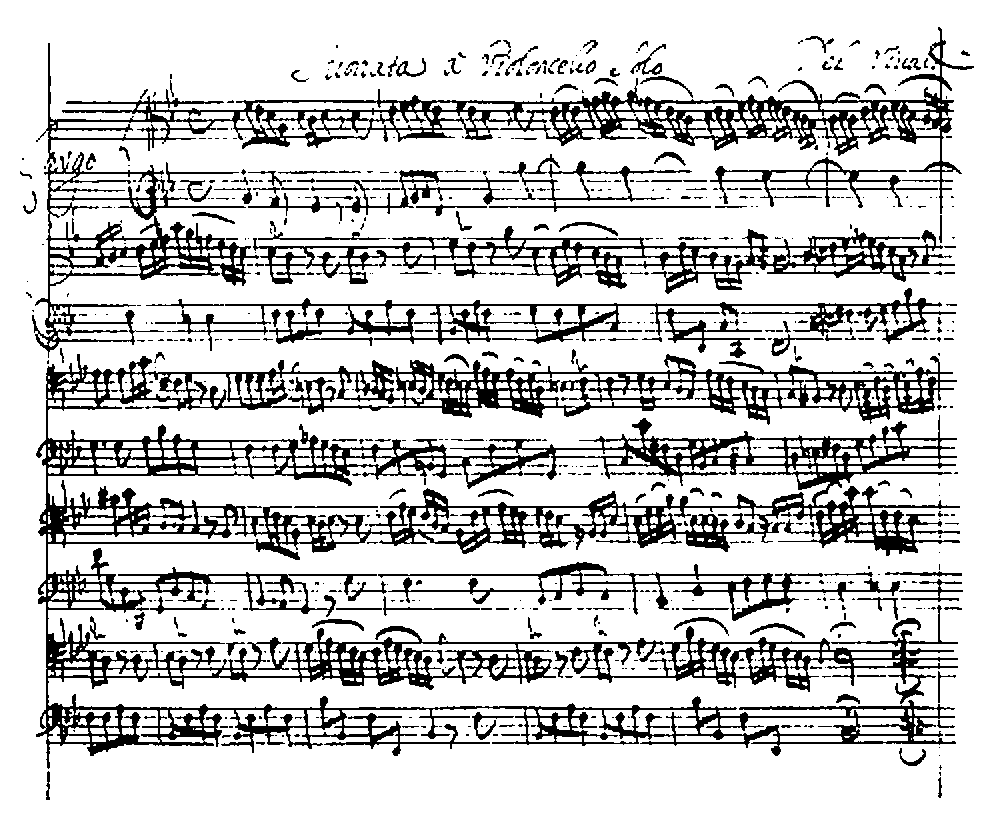 Suonata à Violoncello Solo Del Vivaldi
Largo